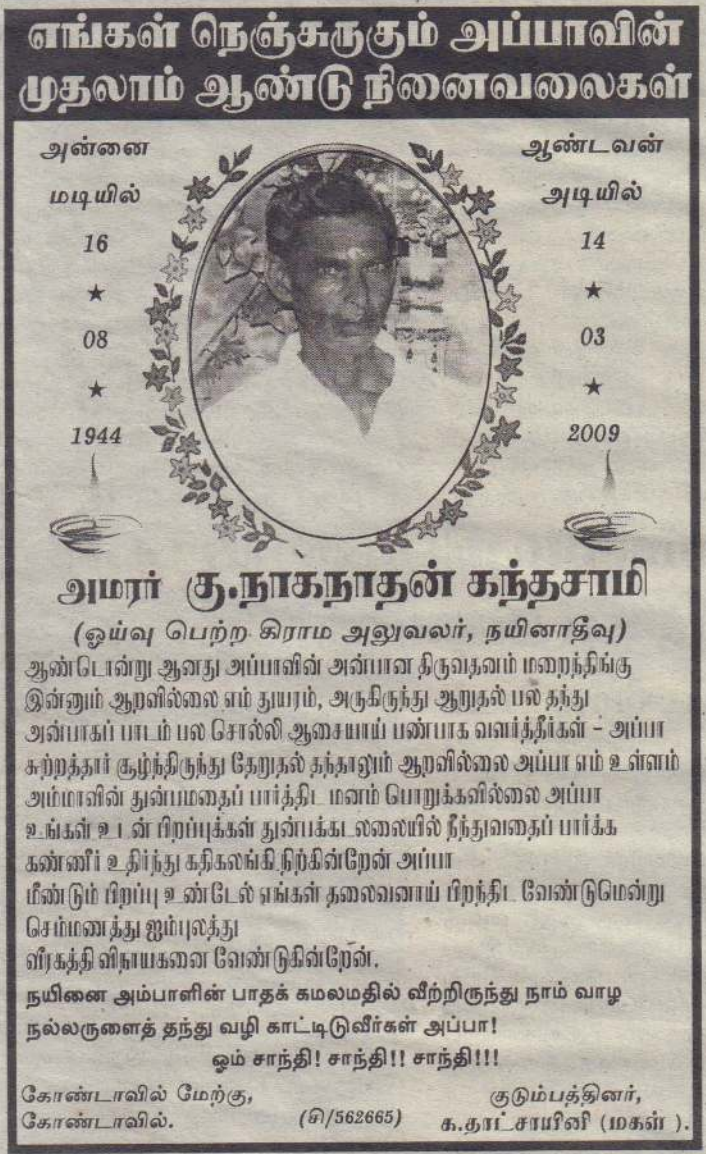 எங்கள் நெஞ்சுருகும் அப்பாவின்
முதலாம் ஆண்டு நினைவலைகள்
அன்னை
மடியில்
16
★
08
★
1944
ஆண்டவன்
அடியில்
14
★
03
★
2009
அமரர் கு.நாகநாதன் கந்தசாமி
(ஓய்வு பெற்ற கிராம அலுவலர், நயினாதீவு)
ஆண்டொன்று ஆனது அப்பாவின் அன்பான திருவதனம் மறைந்திங்கு
இன்னும் ஆறவில்லை எம் துயரம், அருகிருந்து ஆறுதல் பல தந்து
அன்பாகப் பாடம் பல சொல்லி ஆசையாய் பண்பாக வளர்த்தீர்கள் – அப்பா
சுற்றத்தார் சூழ்ந்திருந்து தேறுதல் தந்தாலும் ஆறவில்லை அப்பா எம் உள்ளம்
அம்மாவின் துன்பமதைப் பார்த்திட மனம் பொறுக்கவில்லை அப்பா
உங்கள் உடன் பிறப்புக்கள் துன்பக்கடலலையில் நீந்துவதைப் பார்க்க
கண்ணீர் உதிர்ந்து கதிகலங்கி நிற்கின்றேன் அப்பா
மீண்டும் பிறப்பு உண்டேல் எங்கள் தலைவனாய் பிறந்திட வேண்டுமென்று
செம்மணத்து ஐம்புலத்து
வீரகத்தி விநாயகனை வேண்டுகின்றேன்.
நயினை அம்பாளின் பாதக் கமலமதில் வீற்றிருந்து நாம் வாழ
நல்லருளைத் தந்து வழி காட்டிடுவீர்கள் அப்பா!
ஓம் சாந்தி! சாந்தி!! சாந்தி!!!
கோண்டாவில் மேற்கு,
கோண்டாவில்.
(சி/562665)
குடும்பத்தினர்,
க.தாட்சாயினி (மகள் ).